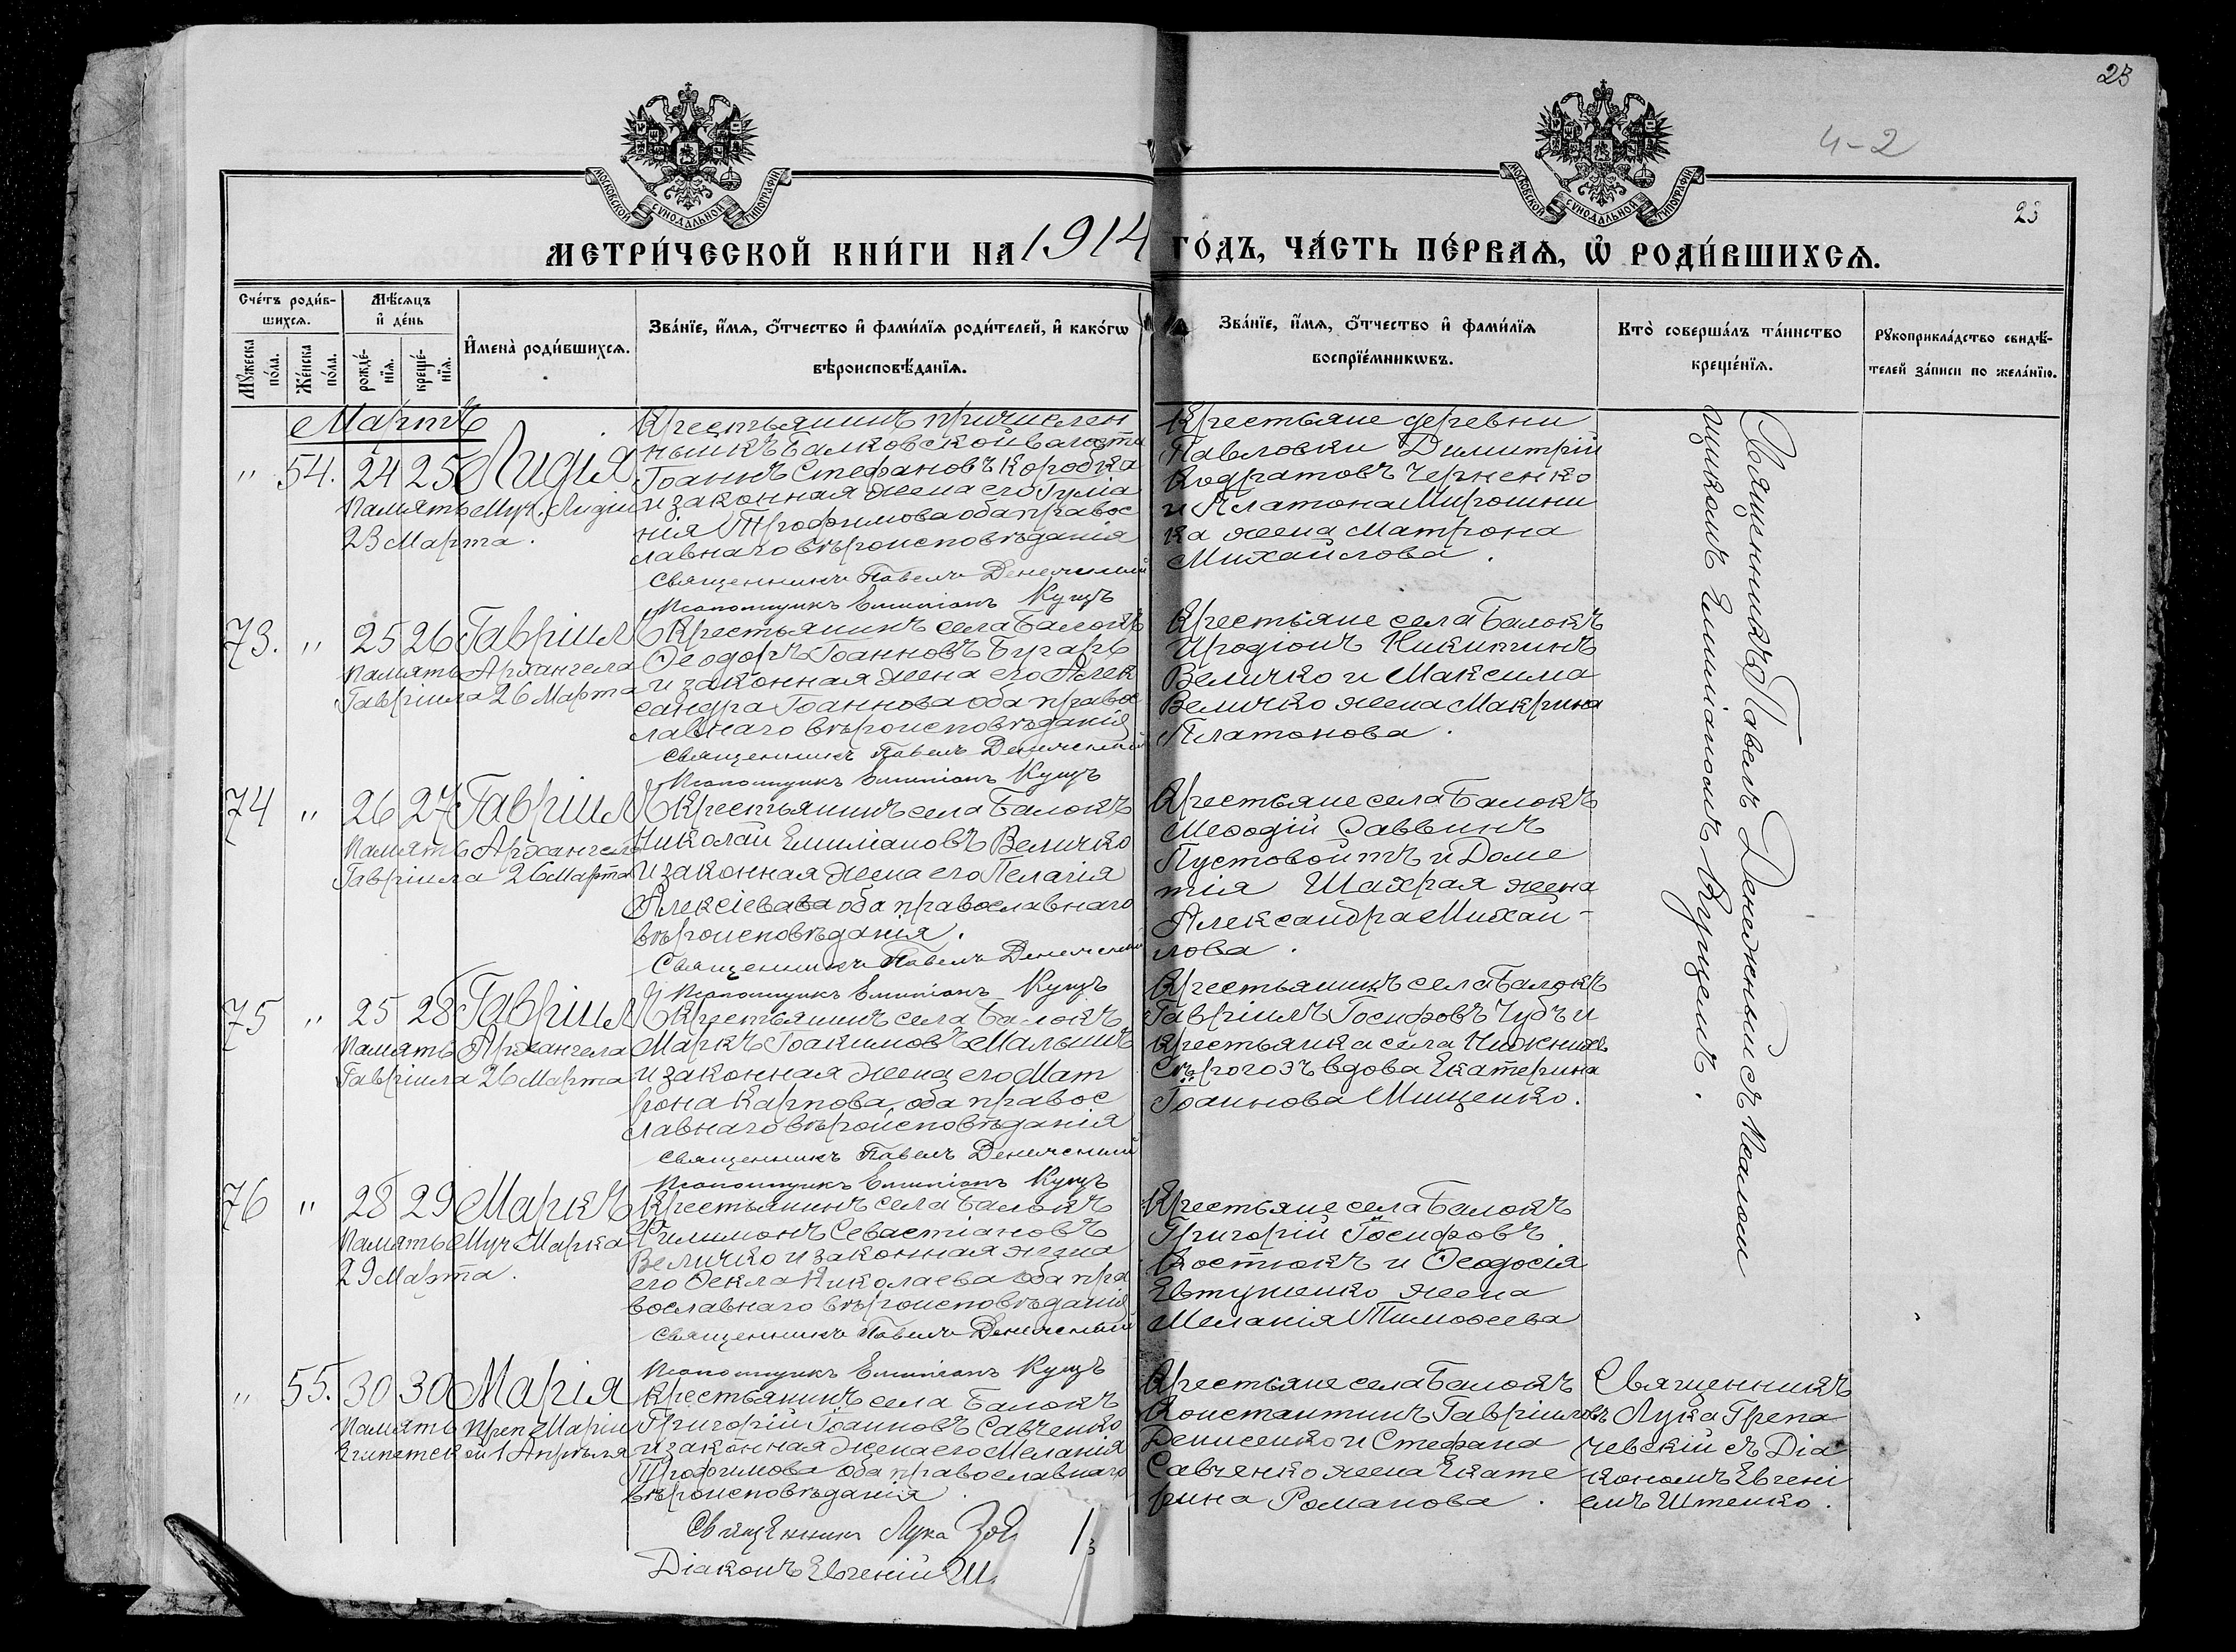 23
4-2
23
МОСКОВСКОЙ СѴНОДАЛЬНОЙ ТИПОГРАФІИ
МОСКОВСКОЙ СѴНОДАЛЬНОЙ ТИПОГРАФІИ
МЕТРИ́ЧЕСКОЙ КНИ́ГИ НА 1914 ГО́ДЪ, ЧА́СТЬ ПЕ́РВАѦ, Ѽ РОДИ́ВШИХСѦ.
Сче́тъ роди́в-
шихсѧ.
Мꙋ́жеска по́ла.
Же́нска по́ла.
Мѣ́сѧцъ
и҆ де́нь
рожде́-
нїѧ.
креще́-
нїѧ.
И҆мена̀ роди́вшихсѧ.
Зва́нїе, и҆́мѧ, ѻ҆́тчество и҆ фами́лїѧ роди́телей, и҆ како́гѡ
вѣроисповѣ́данїѧ.
Зва́нїе, и҆́мѧ, ѻ҆́тчество и҆ фами́лїѧ
воспрїе́мникѡвъ.
Кто̀ соверша́лъ та́инство
креще́нїѧ.
Рꙋкоприкла́дство свидѣ́-
телей за́писи по жела́нїю.
Мартъ
" 54. 24 25 Лидія
Память Муч. Лидіи
23 Марта.
Крестьянинъ причислен
ный къ Балковской волости
Іоаннъ Стефановъ Коробка
и законная жена его Гулiа
нія Трофимова оба правос
лавнаго вѣроисповѣданія
Священникъ Павелъ Денежный
Псаломщикъ Емиліанъ Куцъ
Крестьяне деревни
Павловки Димитрій
Кодратовъ Черненко
и Платона Мирошни
ка жена Матрона
Михайлова.
Священникъ Павелъ Денежный съ Псалом
щикомъ Емиліаномъ Куцемъ.
73. " 25 26 Гавріилъ
Память Архангела
Гавріила 26 Марта
Крестьянинъ села Балокъ
Ѳеодоръ Іоанновъ Бугарь
и законная жена его Алек
сандра Іоаннова оба правос
лавнаго вѣроисповѣданія
Священникъ Павелъ Денежный
Псаломщикъ Емиліанъ Куцъ
Крестьяне села Балокъ
Иродіонъ Никитинъ
Величко и Максима
Величко жена Макрина
Платонова.
74 " 26 27 Гавріилъ
Память Архангела
Гавріила 26 Марта
Крестьянинъ села Балокъ
Николай Емиліановъ Величко
и законная жена его Пелагія
Алексіевава оба православнаго
вѣроисповѣданія.
Священникъ Павелъ Денежный
Псаломщикъ Емиліанъ Куцъ
Крестьяне села Балокъ
Меѳодій Саввинъ
Пустовойтъ и Доме
тія Шахрая жена
Александра Михай-
лова.
75 " 25 28 Гавріилъ
Память Архангела
Гавріила 26 Марта
Крестьянинъ села Балокъ
Маркъ Іоакимовъ Малышъ
и законная жена его Мат
рона Карпова оба правос
лавнаго вѣроисповѣданія
Священникъ Павелъ Денежный
Псаломщикъ Емиліанъ Куцъ
Крестьянинъ села Балокъ
Гавріилъ Іосифовъ Чубъ и
крестьянка села Нижнихъ
Сѣрогозъ вдова Екатерина
Іоаннова Мищенко.
76 " 28 29 Маркъ
Память Муч Марка
29 Марта.
Крестьянинъ села Балокъ
Филимонъ Севастіановъ
Величко и законная жена
его Ѳекла Николаева оба пра
вославнаго вѣроисповѣданія
Священникъ Павелъ Денежный
Псаломщикъ Емиліанъ Куцъ
Крестьяне села Балокъ
Григорій Іосифовъ
Костюкъ и Ѳеодосія
Евтушенко жена
Меланія Тимоѳеева
" 55. 30 30 Марія
Память Преп Маріи
Египетской 1 Апрѣля
Крестьянинъ села Балокъ
Григорій Іоанновъ Савченко
и законная жена его Меланія
Трофимова оба православнаго
вѣроисповѣданія.
Священникъ Лука
Діаконъ Евгеній Ш.
Крестьяне села Балокъ
Константинъ Гавріиловъ
Денисенко и Стефана
Савченко жена Екате
рина Романова.
Священникъ
Лука Грепа
чевскій съ Діа
кономъ Евгені
емъ Штенко.